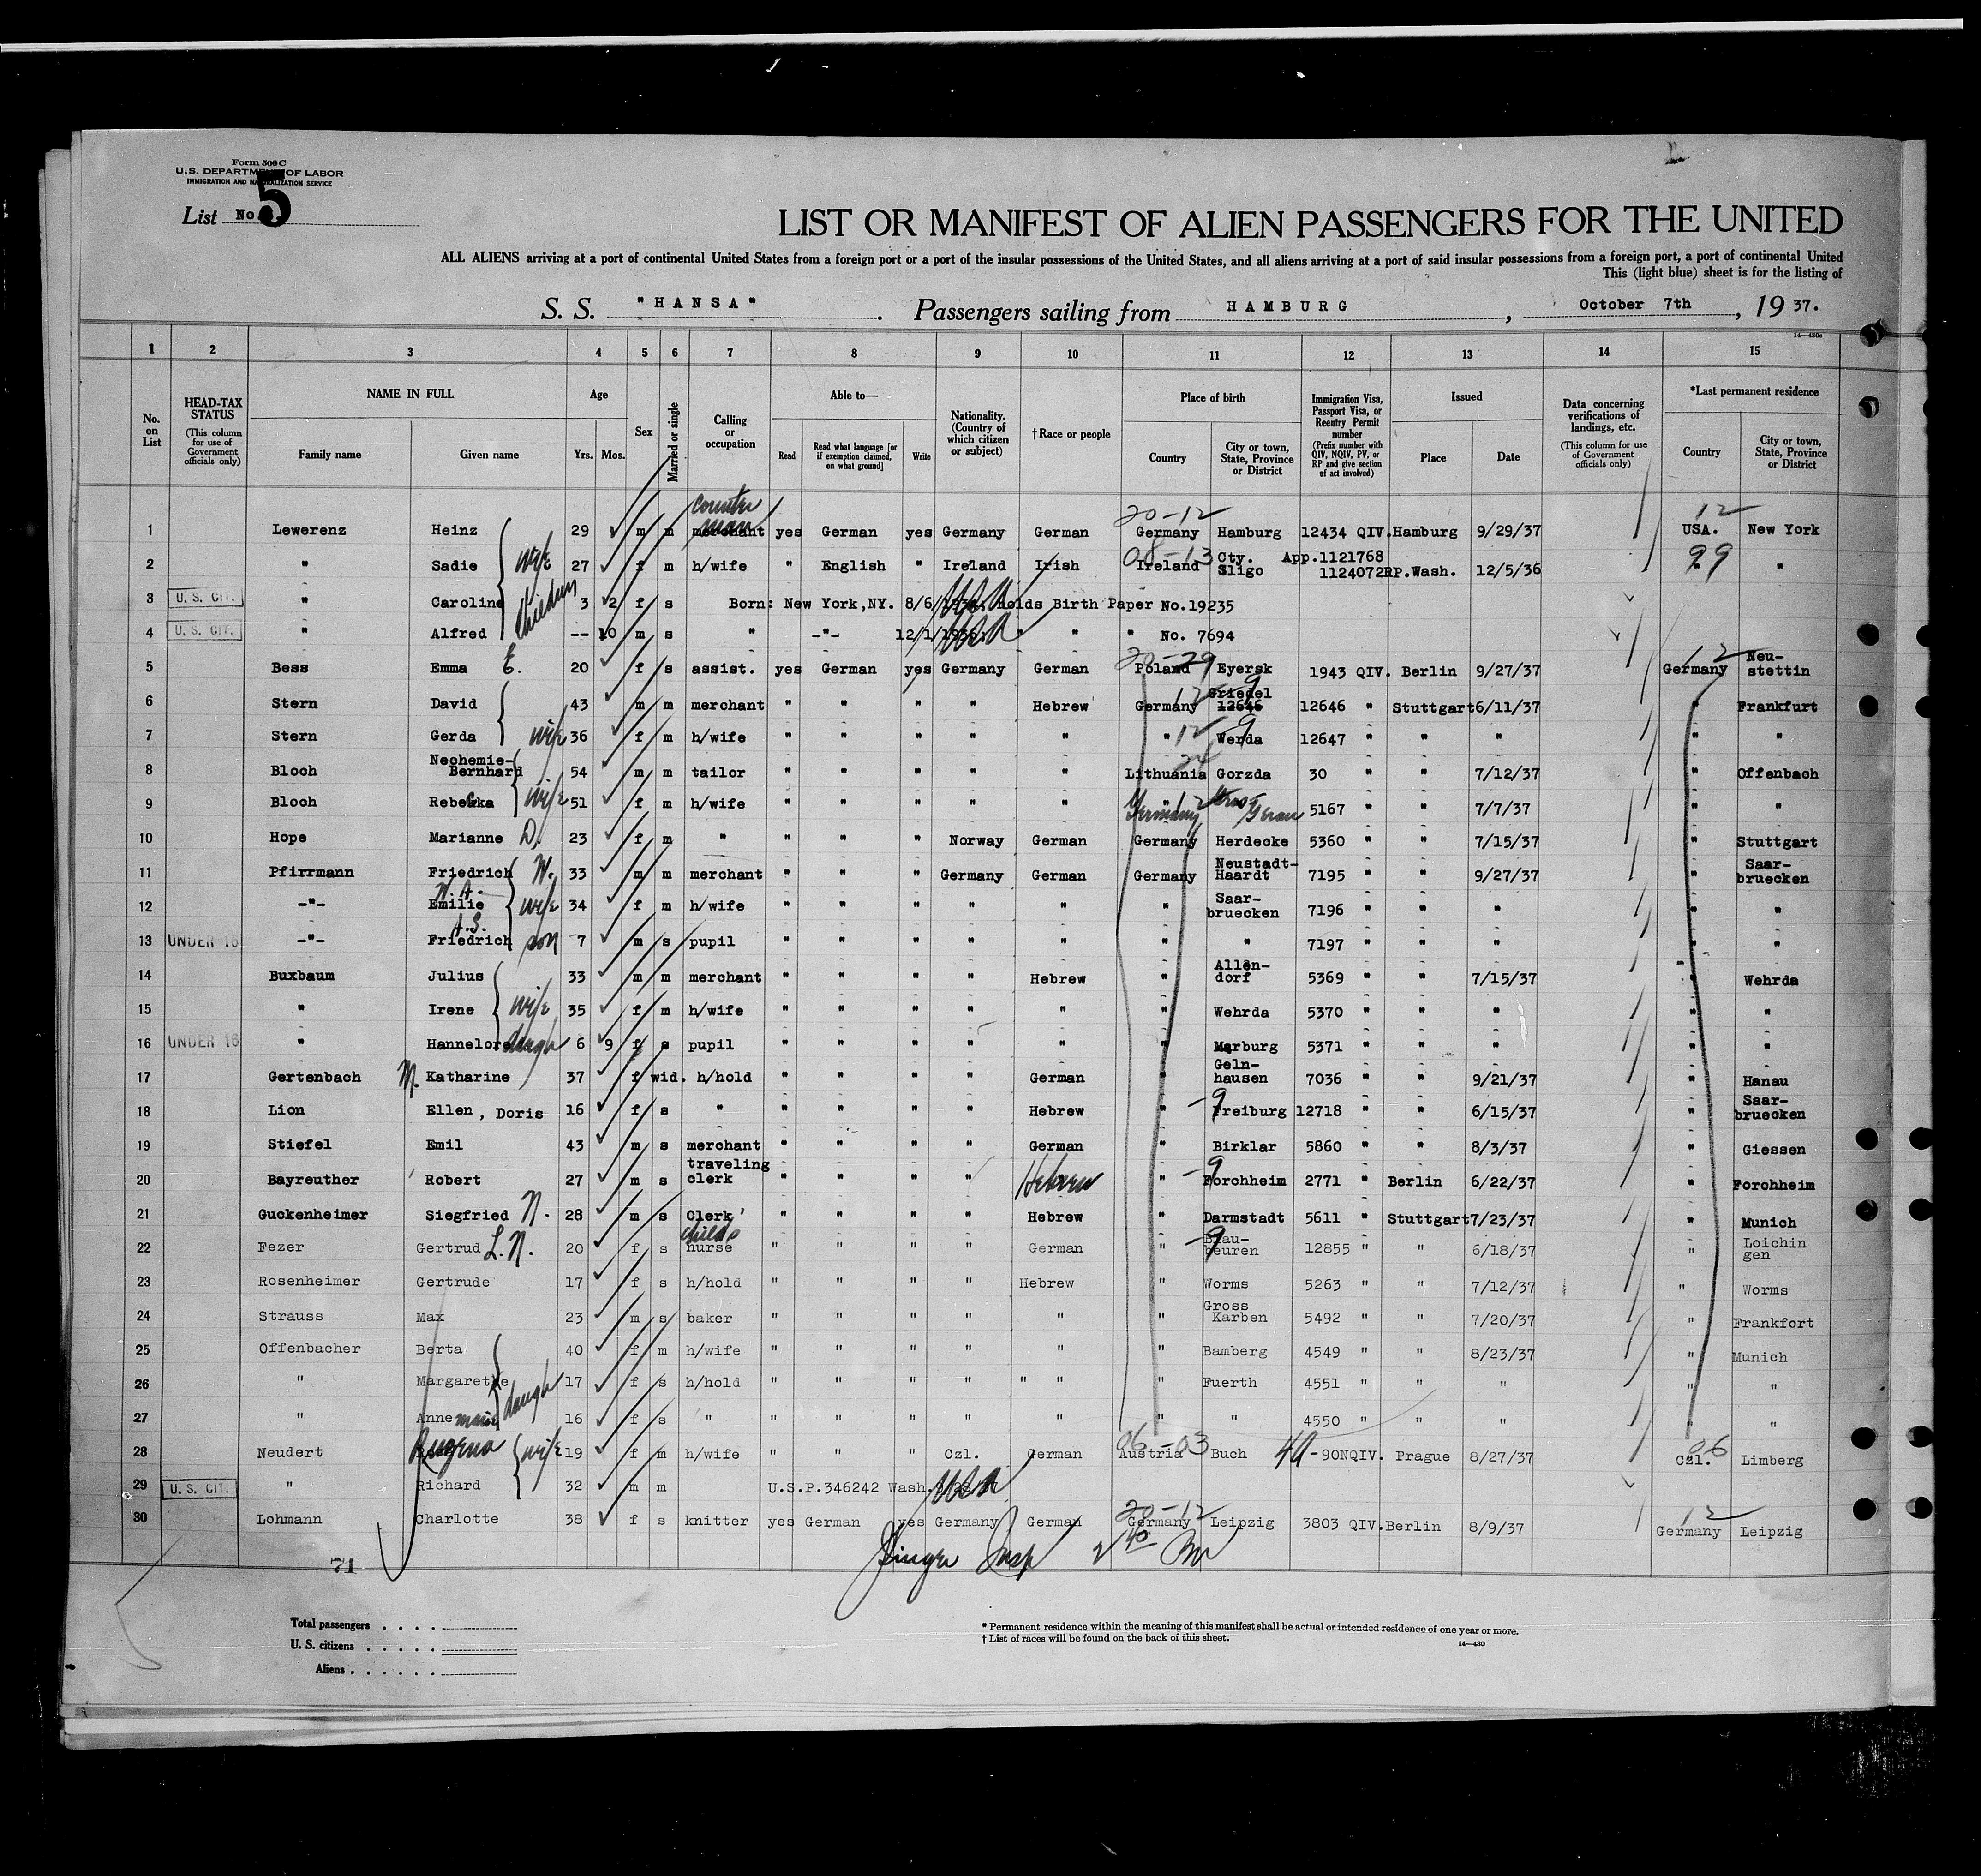 Form 500 C
U.S. DEPARTMENT OF LABOR
IMMIGRATION AND NATURALIZATION SERVICE
List No. 5
LIST OR MANIFEST OF ALIEN PASSENGERS FOR THE UNITED
ALL ALIENS arriving at a port of continental United States from a foreign port or a port of the insular possessions of the United States, and all aliens arriving at a port of said insular possessions from a foreign port, a port of continental United
This (light blue) sheet is for the listing of
S. S. "HANSA". Passengers sailing from HAMBURG, October 7th, 1937.
14—430a
1 2 3 4 5 6 7 8 9 10 11 12 13 14 15
No. on List
HEAD-TAX STATUS (This column for use of Government officials only)
NAME IN FULL Family name Given name
Age Yrs. Mos.
Sex
Married or single
Calling or occupation
Able to— Read Read what language [or if exemption claimed, on what ground] Write
Nationality. (Country of which citizen or subject)
†Race or people
Place of birth Country City or town, State, Province or District
Immigration Visa, Passport Visa, or Reentry Permit number (Prefix number with QIV, NQIV, PV, or RP and give section of act involved)
Issued Place Date
Data concerning verifications of landings, etc. (This column for use of Government officials only)
*Last permanent residence Country City or town, State, Province or District
counter man 20-12 12
1 Lewerenz Heinz 29 m m merchant yes German yes Germany German Germany Hamburg 12434 QIV. Hamburg 9/29/37 USA. New York
2 " Sadie wife 27 f m h/wife " English " Ireland Irish 08-13 Ireland Cty. Sligo App.1121768 1124072RP. Wash. 12/5/36 99 "
3 U. S. CIT. " Caroline children 3 2 f s Born: New York,NY. 8/6/1934. holds Birth Paper No.19235 USA
4 U. S. CIT. " Alfred -- 10 m s " -"- 12/1/1936. " " " No. 7694 USA
5 Bess Emma E. 20 f s assist. yes German yes Germany German 20-29 Poland Eyersk 1943 QIV. Berlin 9/27/37 12 Germany Neu-stettin
6 Stern David 43 m m merchant " " " " Hebrew Germany 12 9 Griedel 12646 12646 " Stuttgart 6/11/37 " Frankfurt
7 Stern Gerda wife 36 f m h/wife " " " " " " 12 9 Werda 12647 " " " " "
8 Bloch Nechemie-Bernhard 54 m m tailor " " " " " 24 Lithuania Gorzda 30 " " 7/12/37 " Offenbach
9 Bloch Rebekka wife 51 f m h/wife " " " " " Germany 12 Gross Gerau 5167 " " 7/7/37 " "
10 Hope Marianne D. 23 f m " " " " Norway German Germany Herdecke 5360 " " 7/15/37 " Stuttgart
11 Pfirrmann Friedrich W. 33 m m merchant " " " Germany German Germany Neustadt-Haardt 7195 " " 9/27/37 " Saar-bruecken
12 -"- W. A. Emilie wife 34 f m h/wife " " " " " " Saar-bruecken 7196 " " " " "
13 UNDER 16 -"- A.S. Friedrich son 7 m s pupil " " " " " " " 7197 " " " " "
14 Buxbaum Julius 33 m m merchant " " " " Hebrew " Allen-dorf 5369 " " 7/15/37 " Wehrda
15 " Irene wife 35 f m h/wife " " " " " " Wehrda 5370 " " " " "
16 UNDER 16 " Hannelore daugh 6 9 f s pupil " " " " " " Marburg 5371 " " " " "
17 Gertenbach M. Katharine 37 f wid. h/hold " " " " German " Geln-hausen 7036 " " 9/21/37 " Hanau
18 Lion Ellen, Doris 16 f s " " " " " Hebrew " -9 Freiburg 12718 " " 6/15/37 " Saar-bruecken
19 Stiefel Emil 43 m s merchant " " " " German " Birklar 5860 " " 8/3/37 " Giessen
20 Bayreuther Robert 27 m s traveling clerk " " " " Hebrew " -9 Forchheim 2771 " Berlin 6/22/37 " Forchheim
21 Guckenheimer Siegfried N. 28 m s Clerk " " " " Hebrew " Darmstadt 5611 " Stuttgart 7/23/37 " Munich
22 Fezer Gertrud L. N. 20 f s childs nurse " " " " German " -9 Blau-beuren 12855 " " 6/18/37 " Loichin gen
23 Rosenheimer Gertrude 17 f s h/hold " " " " Hebrew " Worms 5263 " " 7/12/37 " Worms
24 Strauss Max 23 m s baker " " " " " " Gross Karben 5492 " " 7/20/37 " Frankfort
25 Offenbacher Berta 40 f m h/wife " " " " " " Bamberg 4549 " " 8/23/37 " Munich
26 " Margarethe daugh 17 f s h/hold " " " " " " Fuerth 4551 " " " " "
27 " Anne marie 16 f s " " " " " " " " 4550 " " " " "
28 Neudert wife 19 f m h/wife " " " Czl. German 06-03 Austria Buch 4A-90NQIV. Prague 8/27/37 06 Czl. Limberg
29 U. S. CIT. " Richard 32 m m U.S.P.346242 Wash. USA
30 Lohmann Charlotte 38 f s knitter yes German yes Germany German 20-12 Germany Leipzig 3803 QIV. Berlin 8/9/37 12 Germany Leipzig
71
Total passengers
U. S. citizens
Aliens
* Permanent residence within the meaning of this manifest shall be actual or intended residence of one year or more.
† List of races will be found on the back of this sheet.
14—430